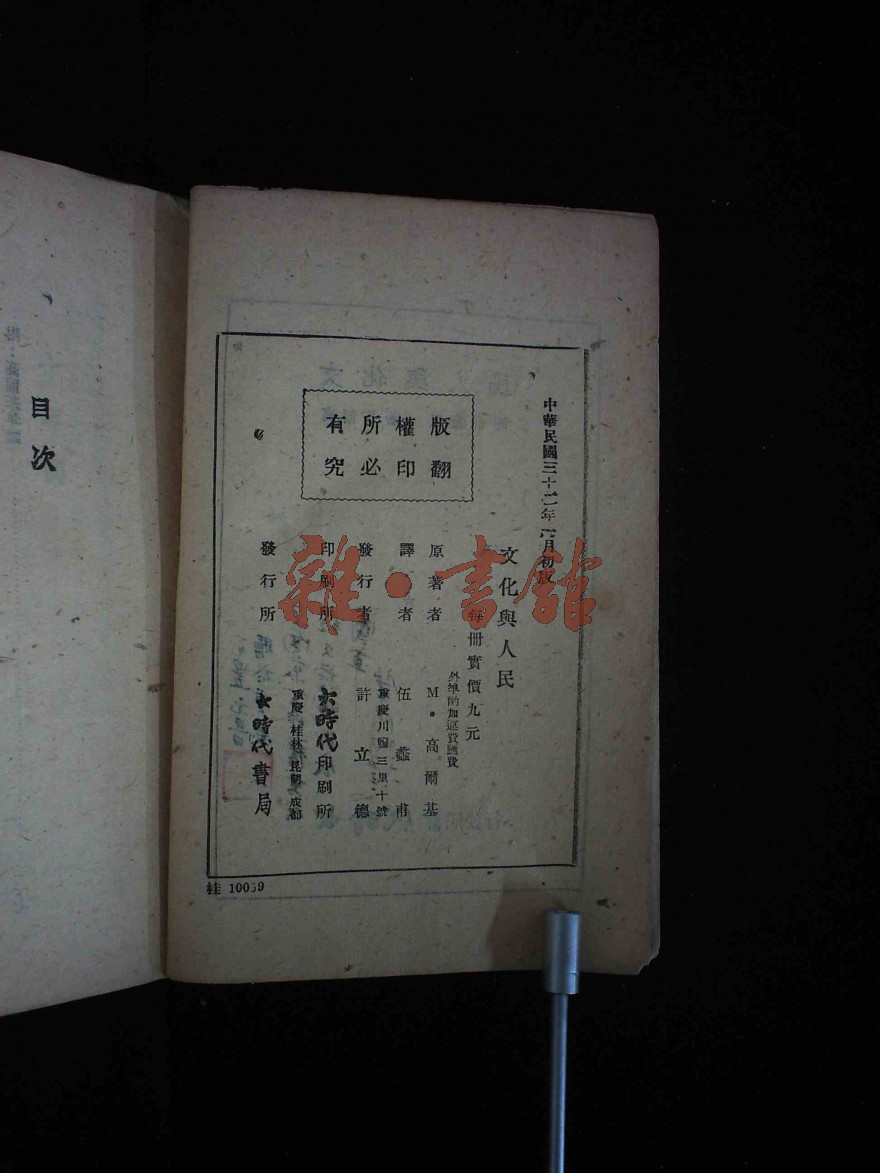 中華民國三十二年六月初版
文化與人民
每冊實價九元
外埠酌加運費匯費
原著者　M・高爾基
譯者　伍蠡甫
發行者　許立德
印刷所　大時代印刷所
發行所　大時代書局
版權所有
翻印必究
桂 10059
目次
雜・書館